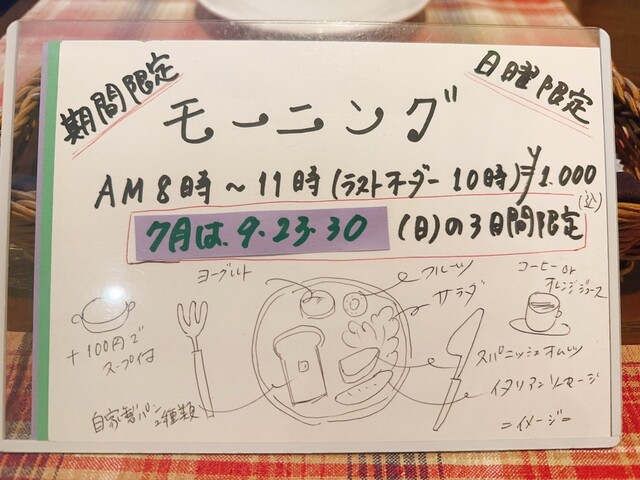 期間限定
日曜限定
モーニング
AM 8時～11時(ラストオーダー 10時)¥1.000
(込)
7月は.9.23.30 (日)の3日間限定
ヨーグルト
フルーツ
サラダ
コーヒーor
オレンジジュース
+100円で
スープ付
スパニッシュオムレツ
イタリアンソーセージ
自家製パン
2種類
=イメージ=